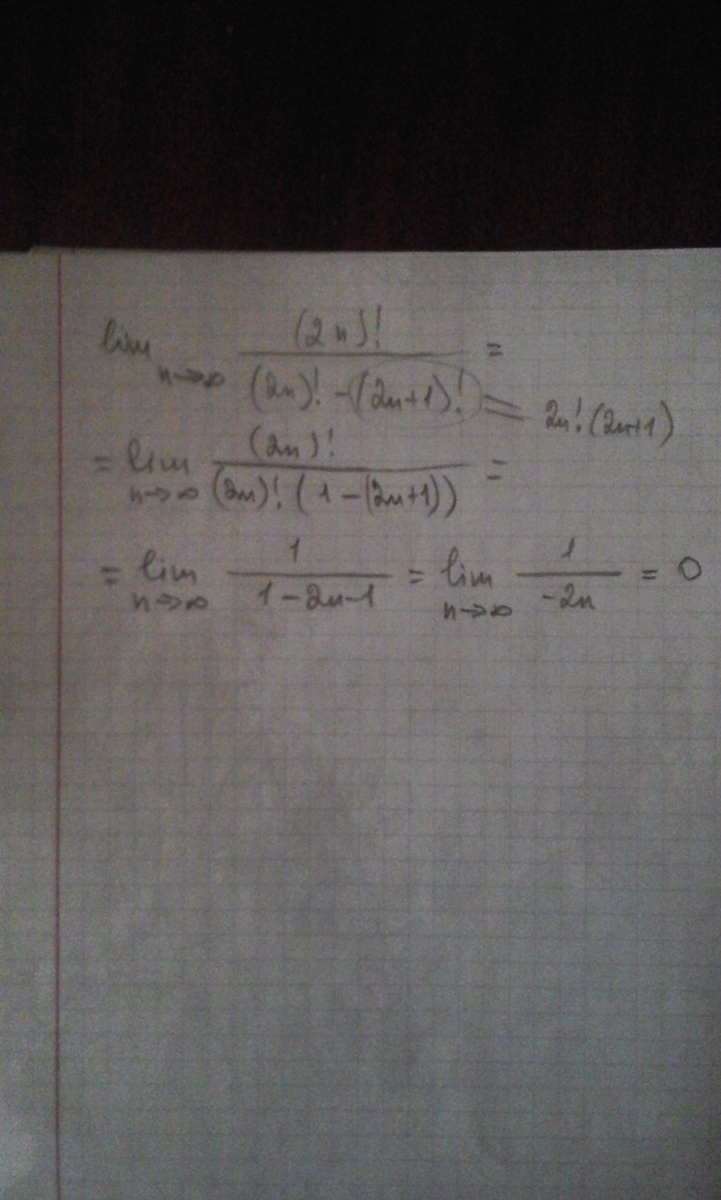 lim n→∞ (2n)! / ((2n)! - (2n+1)!) =
= 2n! (2n+1)
= lim n→∞ (2n)! / ((2n)! (1 - (2n+1))) =
= lim n→∞ 1 / (1 - 2n - 1) = lim n→∞ 1 / (-2n) = 0